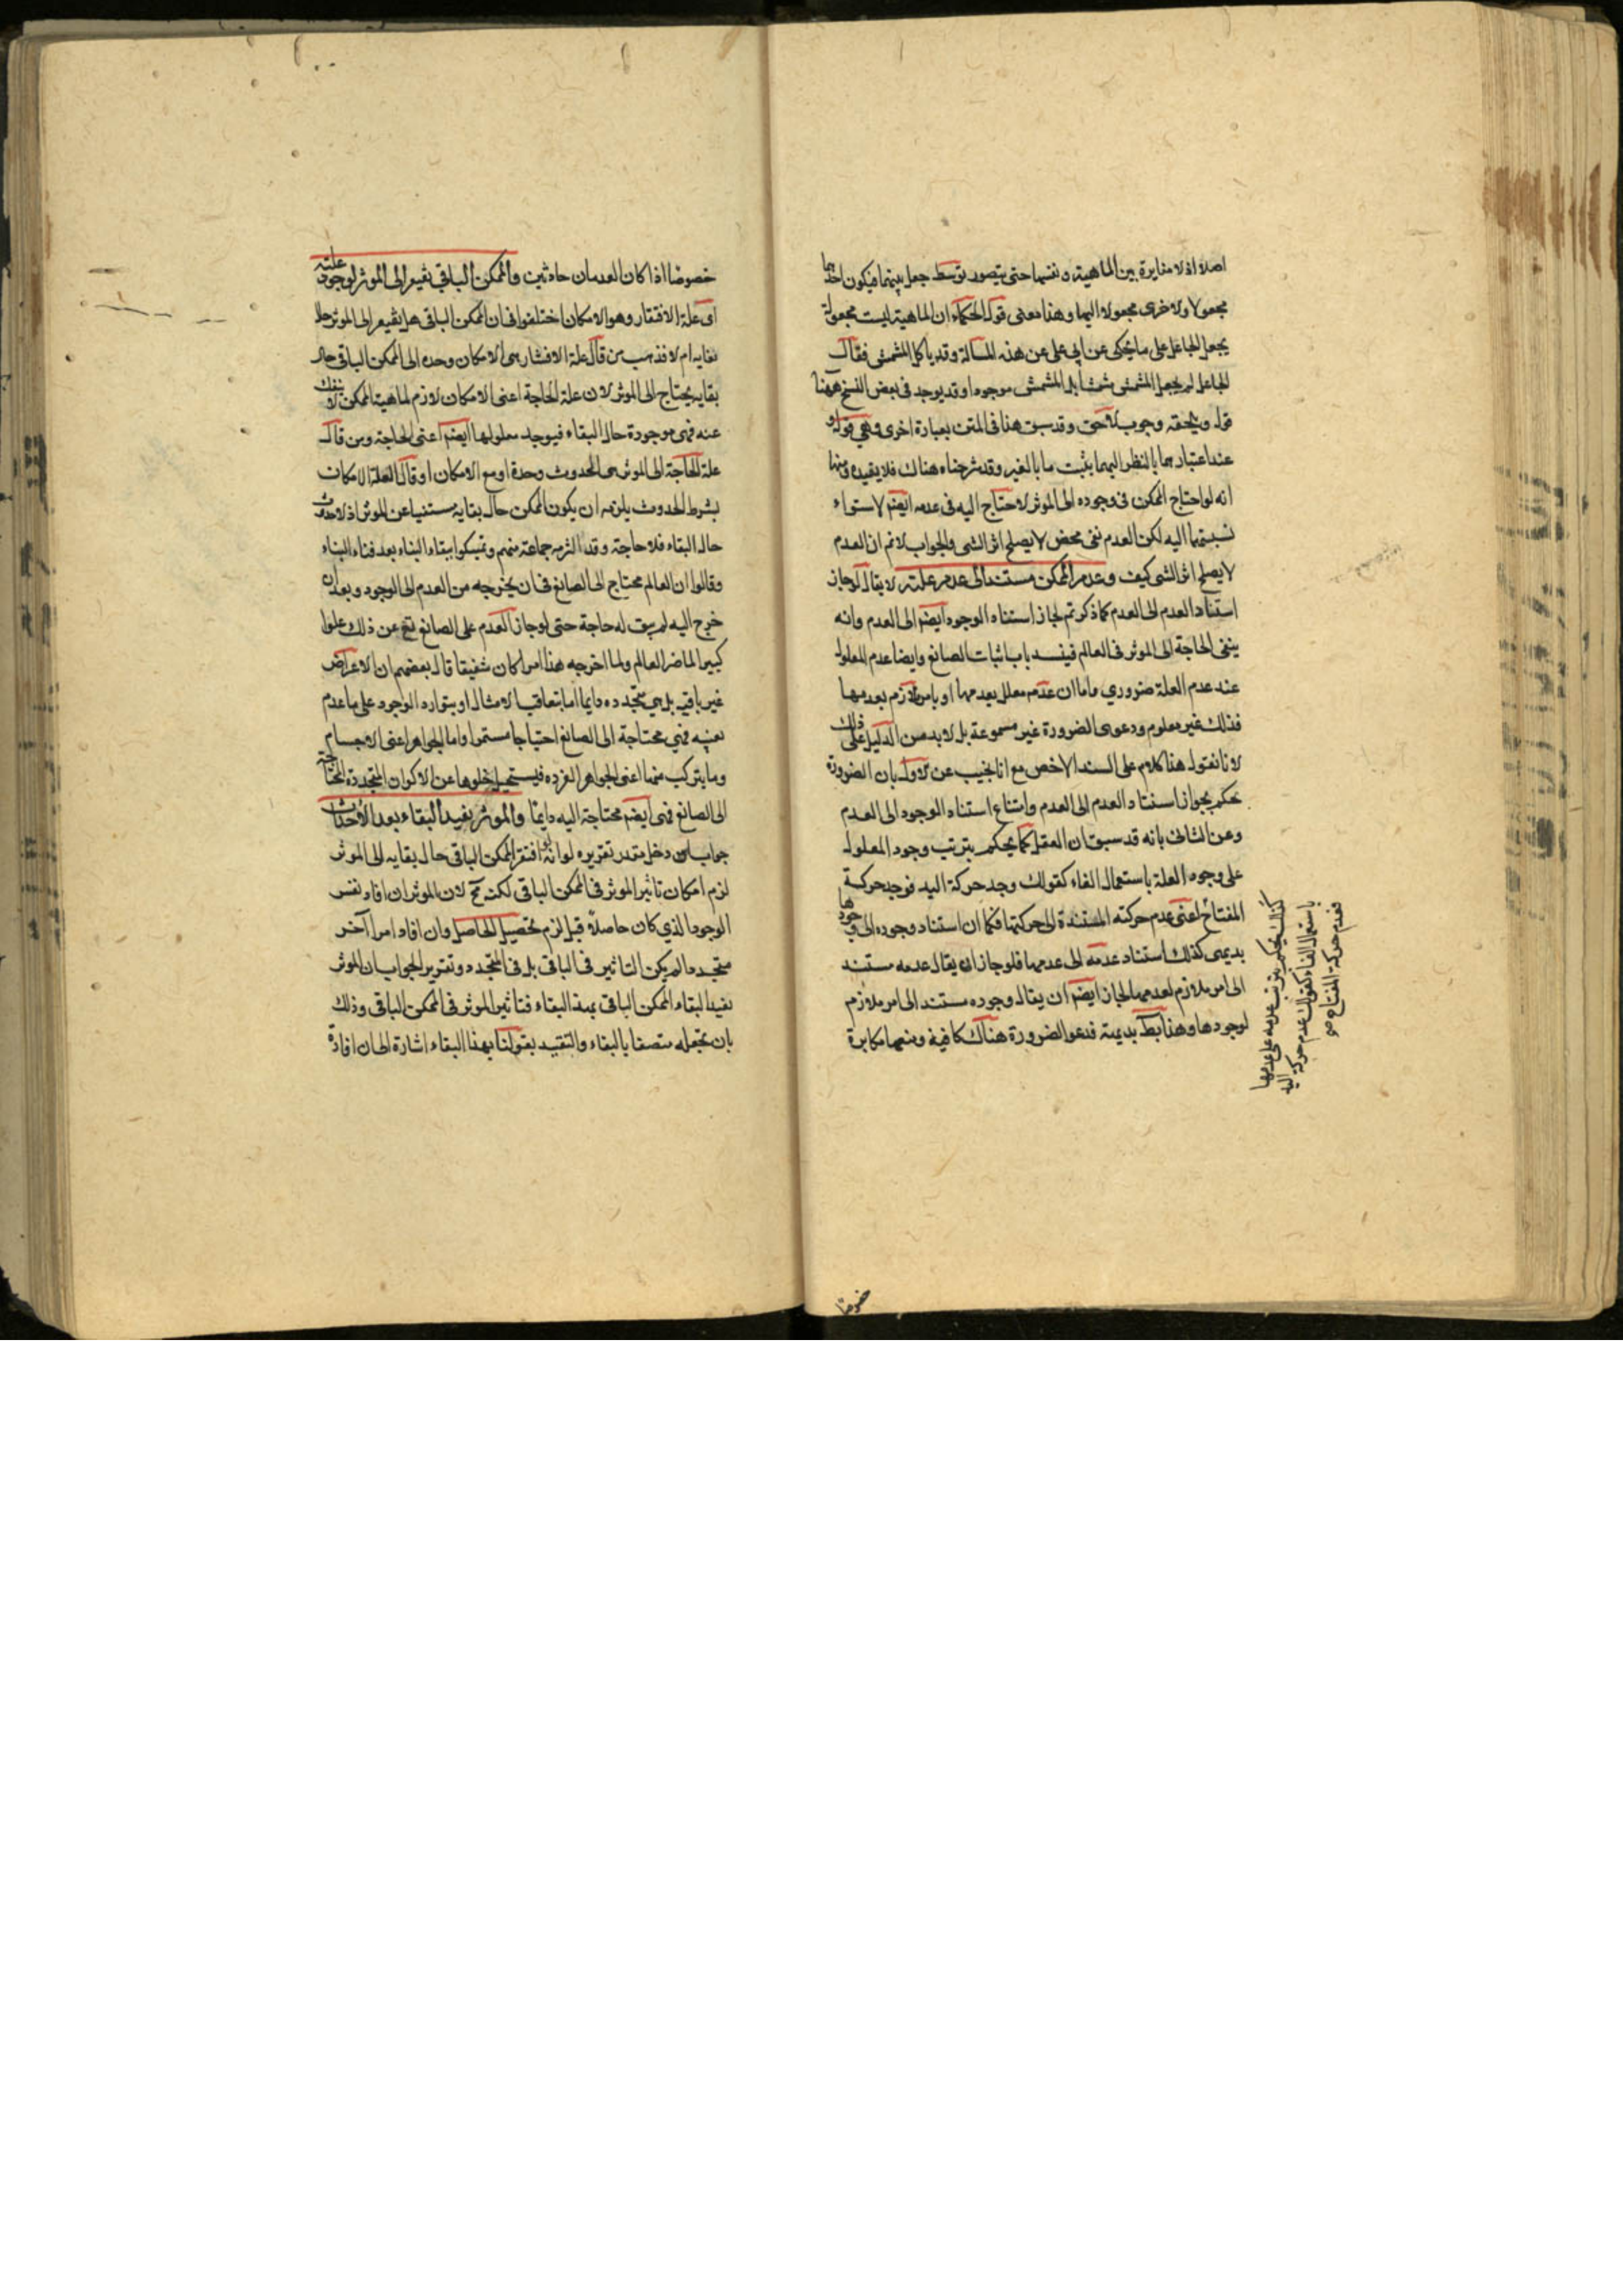 اصلا اذ لا مغايرة بين الماهية و نفسها حتى يتصور توسط جعل بينهما فيكون احدهما
مجعولا ولاخرى مجعولا اليها وهذا معنى قول الحكماء ان الماهية ليست مجعولة
بجعل الجاعل على ما يحكى عن ابى على عن هذه المسالة وقد ياكل المشمش فقال
الجاعل لم يجعل المشمش مشمشا بل المشمش موجودا وقد يوجد فى بعض النسخ ههنا
قوله ويلحقه وجوب لاحق وقد سبق هذا فى المتن بعبارة اخرى وهي قوله و
عند اعتبارهما بالنظر اليهما يثبت ما بالغير وقد شرحناه هناك فلا يفيده ومنها
انه لو احتاج الممكن فى وجوده الى الموثر لاحتاج اليه فى عدمه ايضم لاستواء
نسبتهما اليه لكن العدم نفى محض لا يصلح اثر الشى والجواب لا نم ان العدم
لا يصلح اثر الشى كيف وعدم الممكن مستند الى عدم علته لا يقال لو جاز
استناد العدم الى العدم كما ذكرتم لجاز استناد الوجود ايضم الى العدم وانه
ينفى الحاجة الى الموثر فى العالم فيفسد باب اثبات الصانع وايضا عدم المعلول
عند عدم العلة ضروري واما ان عدمه معلل بعدمها او بامر لازم بعدمها
فذلك غير معلوم ودعوى الضرورة غير مسموعة بل لا بد من الدليل على ذلك
لانا نقول هذا كلام على السند الاخص مع انا نجيب عن الاول بان الضرورة
تحكم بجواز استناد العدم الى العدم وامتناع استناد الوجود الى العدم
وعن الثانى بانه قد سبق ان العقل كما يحكم بترتب وجود المعلول
على وجود العلة باستعمال الفاء كقولك وجد حركة اليد فوجد حركة
المفتاح اعنى عدم حركته المستندة الى حركتها فكما ان استناد وجوده الى وجودها
بديهى كذلك استناد عدمه الى عدمها فلو جاز ان يقال عدمه مستند
الى امر ملازم لعدمها لجاز ايضم ان يقال وجوده مستند الى امر ملازم
لوجودها وهذا بط بديهة فدعوا الضرورة هناك كافية ومنعها مكابرة
كذلك يحكم بترتب عدمه على عدمها
باستعمال الفاء كقولك عدم حركة اليد
فعدم حركة المفتاح صح
خصوصا
خصوصا اذا كان العدمان حادثين والممكن الباقي يفتقر الى الموثر لوجود علته
اى علة الافتقار وهو الامكان اختلفوا فى ان الممكن الباقى هل يفتقر الى الموثر حال
بقايه ام لا فذهب من قال علة الافتقار هى الامكان وحده الى الممكن الباقى حال
بقايه يحتاج الى الموثر لان علة الحاجة اعنى الامكان لازم لماهية الممكن لا ينفك
عنه فهى موجودة حال البقاء فيوجد معلولها ايضم اعنى الحاجة ومن قال
علة الحاجة الى الموثر هى الحدوث وحدة او مع الامكان او قال العلة الامكان
بشرط الحدوث يلزمه ان يكون الممكن حال بقايه مستغنيا عن الموثر اذ لا حدوث
حال البقاء فلا حاجة وقد التزمه جماعة منهم وتمسكوا ببقاء البناء بعد فناء البناء
وقالوا ان العالم محتاج الى الصانع فى ان يخرجه من العدم الى الوجود وبعد ان
خرج اليه لم يبق له حاجة حتى لو جاز العدم على الصانع تع عن ذلك علوا
كبيرا لما ضر العالم ولما اخرجه هذا امرا كان شنيعا قال بعضهم ان الاعراض
غير باقية بل هى متجددة دايما اما بتعاقب الامثال او بتوارد الوجود على ما عدم
بعينه فهى محتاجة الى الصانع احتياجا مستمرا واما الجواهر اعنى الاجسام
وما يتركب منها اعنى الجواهر الفرده فيستحيل خلوها عن الاكوان المتجددة المحتاجة
الى الصانع فهى ايضم محتاجة اليه دايمًا والموثر يفيد البقاء بعد الاحداث
جواب عن دخل مقدر تقريره لو انه افتقر الممكن الباقى حال بقايه الى الموثر
لزم امكان تاثير الموثر فى الممكن الباقى لكنه مح لان الموثر ان افاد نفس
الوجود الذي كان حاصلا قبل لزم تحصيل الحاصل وان افاد امرا آخر
متجددا لم يكن التاثير فى الباقى بل فى المتجدد وتقرير الجواب ان الموثر
يفيد البقاء الممكن الباقى بهذ البقاء فتاثير الموثر فى الممكن الباقى وذلك
بان يجعله متصفا بالبقاء والتقييد بقولنا بهذا البقاء اشارة الى ان افادة